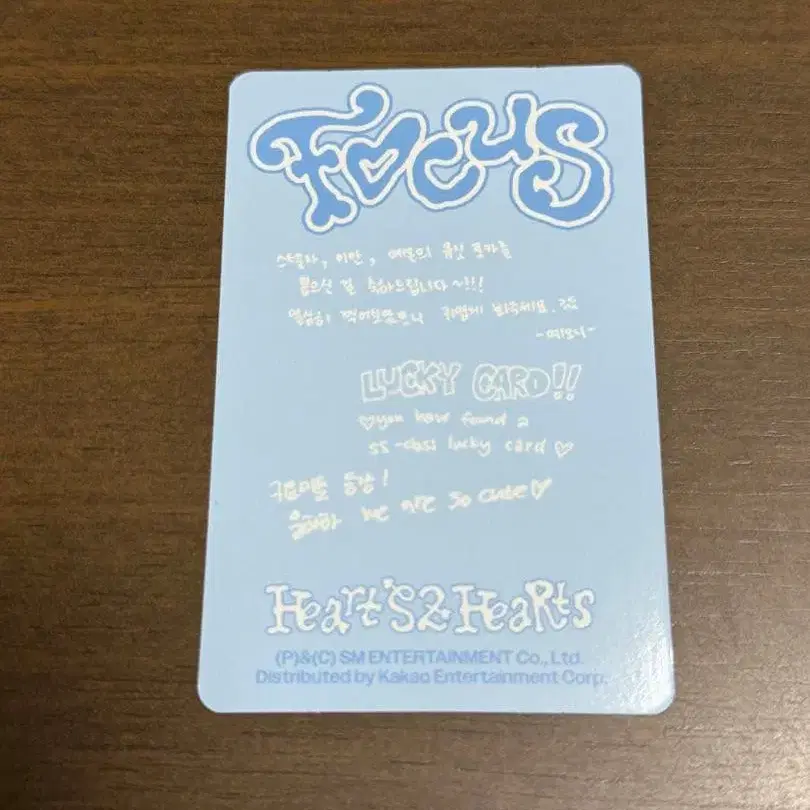 Focus
스텔라, 이안, 예온의 유닛 포카를
뽑으신 걸 축하드립니다~!!!
열심히 찍어봤으니 귀엽게 봐주세요.
LUCKY CARD!!
♡you have found a
SS-class lucky card♡
등장!
we are so cute♡
Hearts2Hearts
(P)&(C) SM ENTERTAINMENT Co., Ltd.
Distributed by Kakao Entertainment Corp.